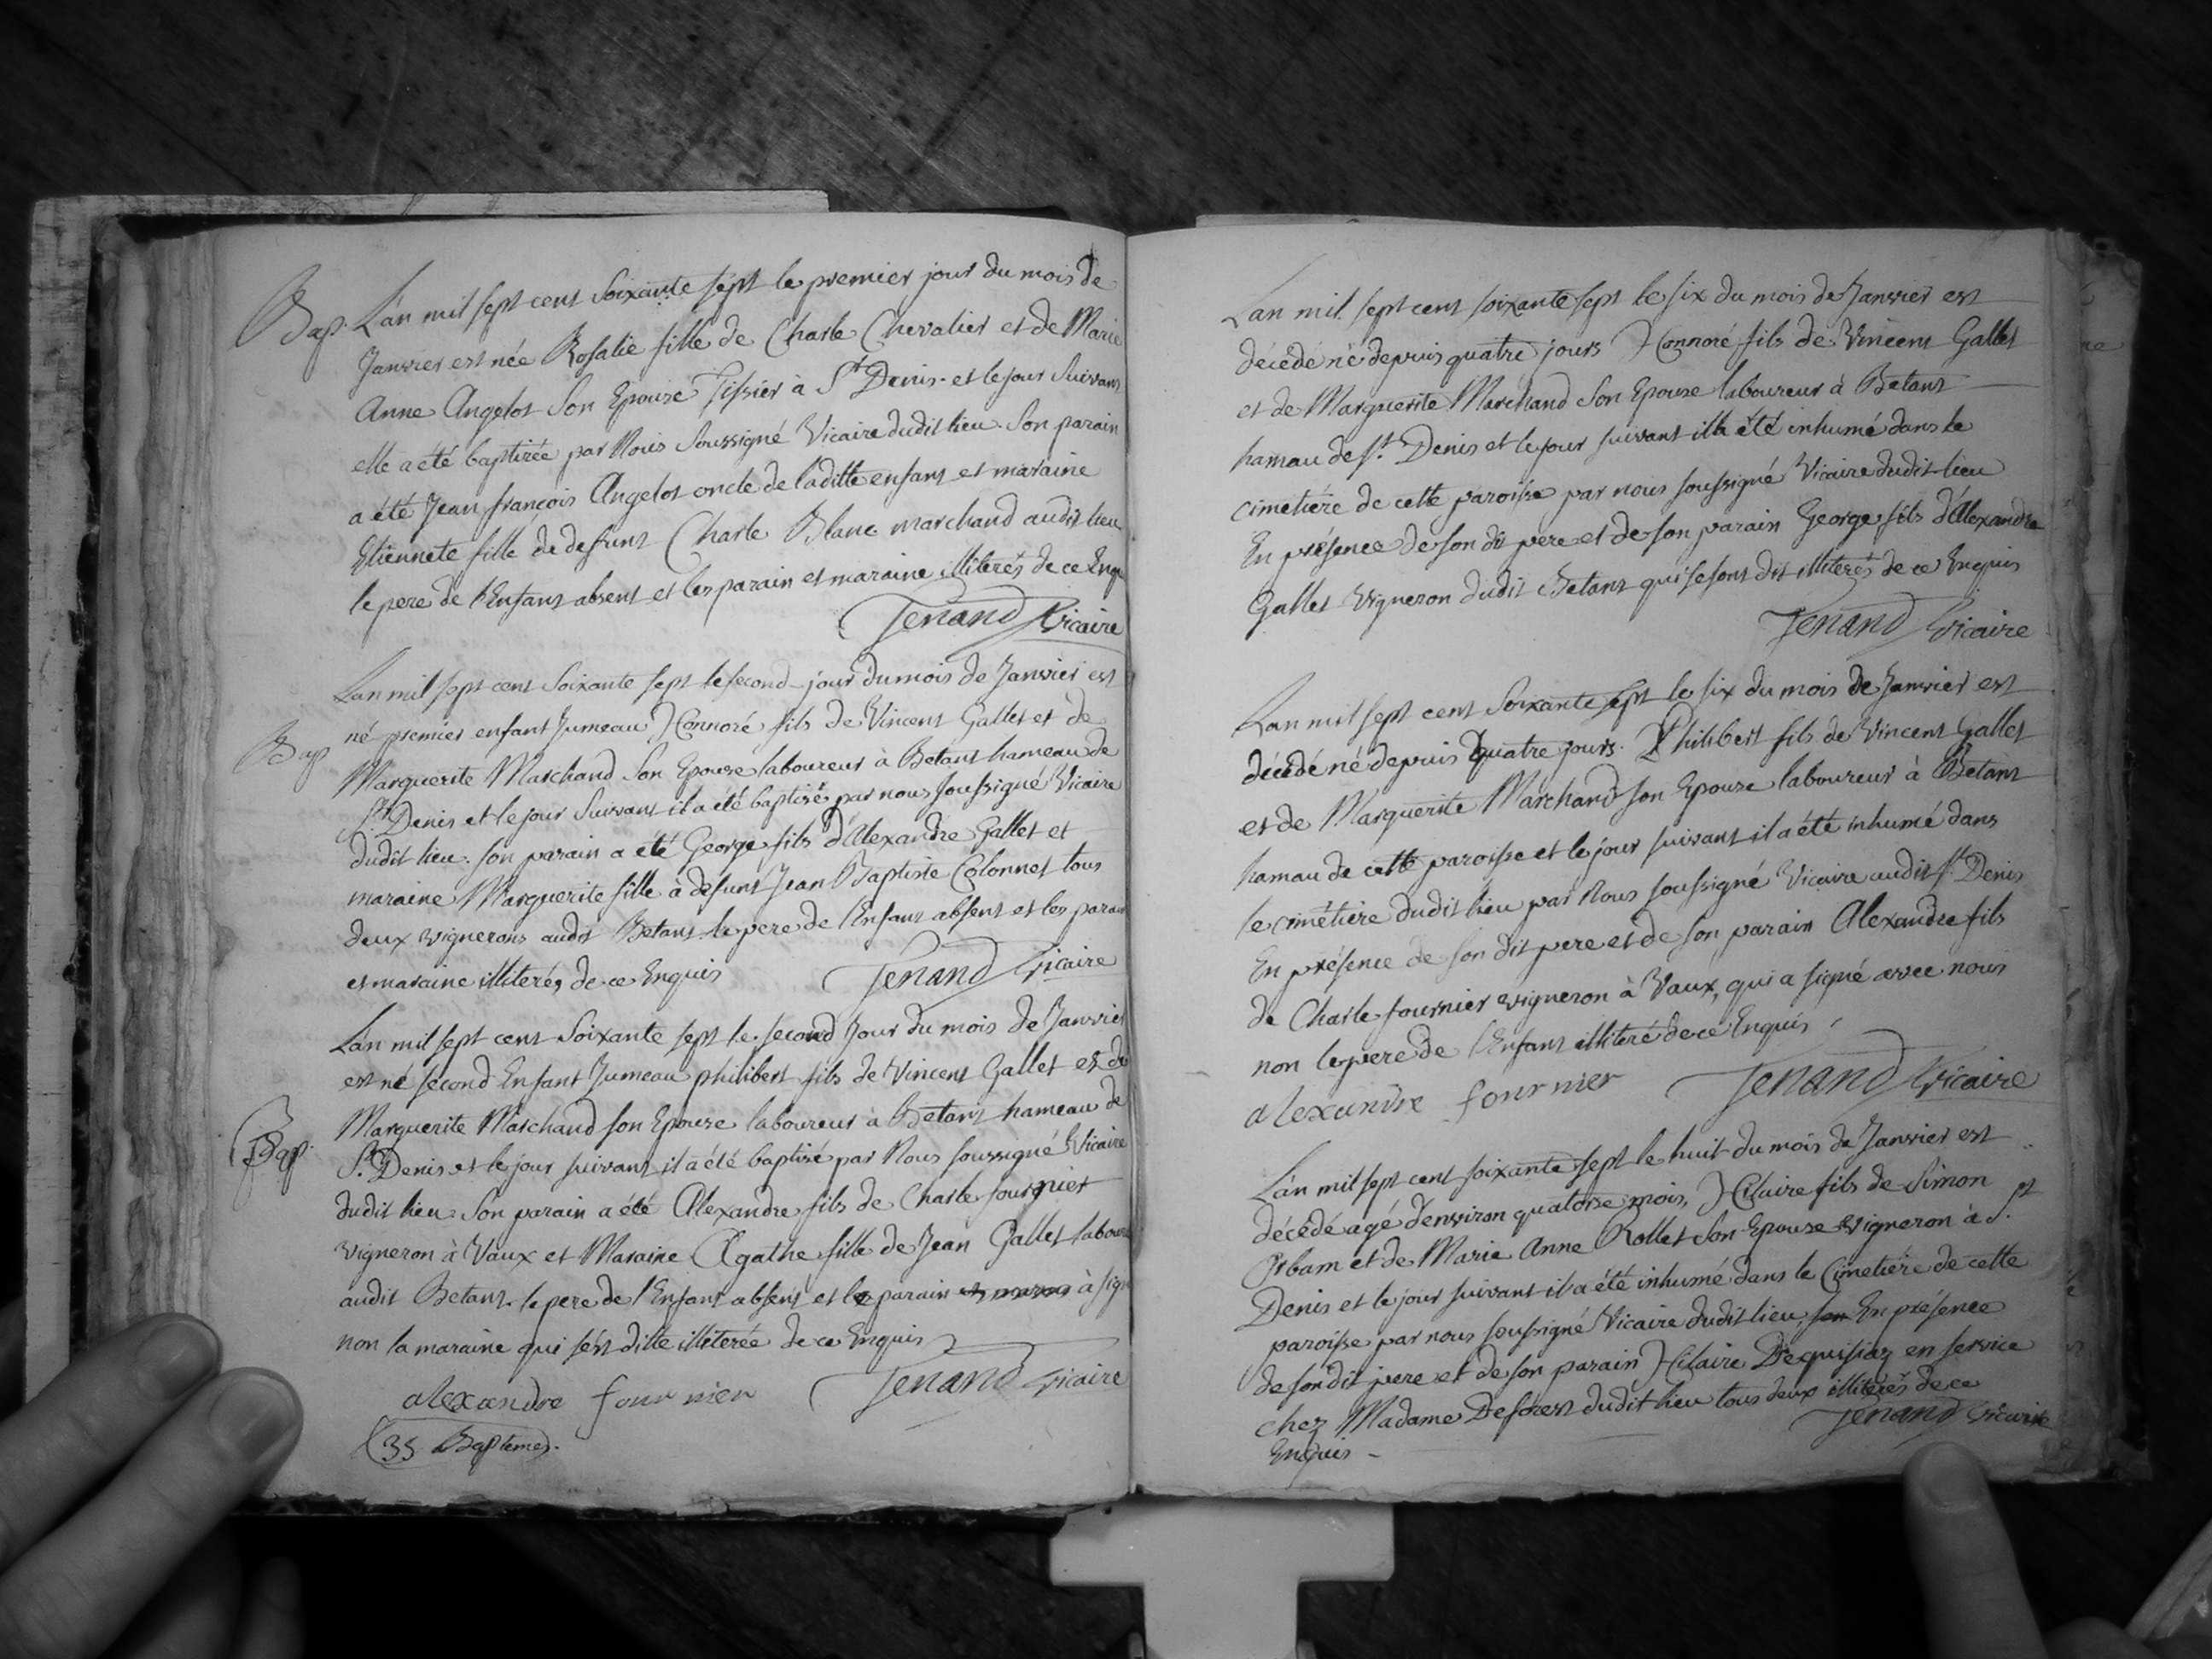 Bap. L'an mil sept cent soixante sept le premier jour du mois de
Janvier est née Rosalie fille de Charle Chevalier et de Marie
Anne Angelot son Epouse Tissier à St Denis et le jour suivant
elle a été baptisée par Nous soussigné Vicaire dudit lieu. Son parain
a été Jean françois Angelot oncle de laditte enfant et maraine
Etiennete fille de defunt Charle Blanc marchand audit lieu
le pere de l'Enfant absent et les parain et maraine illiterés de ce Enqu
Tenand Vicaire
Lan mil sept cent soixante sept le second jour du mois de Janvier est
Bap né premier enfant Jumeau Honnoré fils de Vincent Gallet et de
Marguerite Marchand son Epouse laboureur à Betant hameau de
St Denis et le jour suivant il a été baptisé par nous soussigné Vicaire
dudit lieu. son parain a été George fils d'Alexandre Gallet et
maraine Marguerite fille à defunt Jean Baptiste Colonnet tous
deux vignerons audit Betant. le pere de l'Enfant absent et les parain
et maraine illiterés de ce Enquis
Tenand Vicaire
Lan mil sept cent soixante sept le second Jour du mois de Janvier
est né second Enfant Jumeau philibert fils de Vincent Gallet et de
Marguerite Marchand son Epouse laboureur à Betant hameau de
Bap. St Denis et le jour suivant il a été baptisé par Nous soussigné Vicaire
dudit lieu. Son parain a été Alexandre fils de Charle fournier
vigneron à Vaux et Maraine Agathe fille de Jean Gallet labour
audit Betant. le pere de l'Enfant absent et le parain à signé
non la maraine qui s'est ditte illiterée de ce Enquis
alexandre fournier Tenand Vicaire
35 Baptemes.
Lan mil sept cent soixante sept le six du mois de Janvier est
décédé né depuis quatre jours Honnoré fils de Vincent Gallet
et de Marguerite Marchand son Epouse laboureur à Betant
hamau de St Denis et le jour suivant il a été inhumé dans le
cimetière de cette paroisse par nous soussigné Vicaire dudit lieu
En présence de son dit pere et de son parain George fils d'Alexandre
Gallet vigneron dudit Betant qui se sont dit illiterés de ce Enquis
Tenand Vicaire
Lan mil sept cent soixante sept le six du mois de Janvier est
décédé né depuis quatre jours. Philibert fils de Vincent Gallet
et de Marguerite Marchand son Epouse laboureur à Betant
hamau de cette paroisse et le jour suivant il a été inhumé dans
le cimétière dudit lieu par Nous soussigné Vicaire audit St Denis
En présence de son dit pere et de son parain Alexandre fils
de Charle fournier vigneron à Vaux, qui a signé avec nous
non le pere de l'Enfant illiteré de ce Enquis
alexandre fournier Tenand Vicaire
L'an mil sept cent soixante sept le huit du mois de Janvier est
décédé agé d'environ quatorse mois, Hilaire fils de Simon
Orbam et de Marie Anne Rollet son Epouse vigneron à St
Denis et le jour suivant il a été inhumé dans le Cimetière de cette
paroisse par nous soussigné Vicaire dudit lieu, son En présence
de son dit pere et de son parain Hilaire Dequisiaz en service
chez Madame Deforest dudit lieu tous deux illiterés de ce
Enquis - Tenand Vicaire